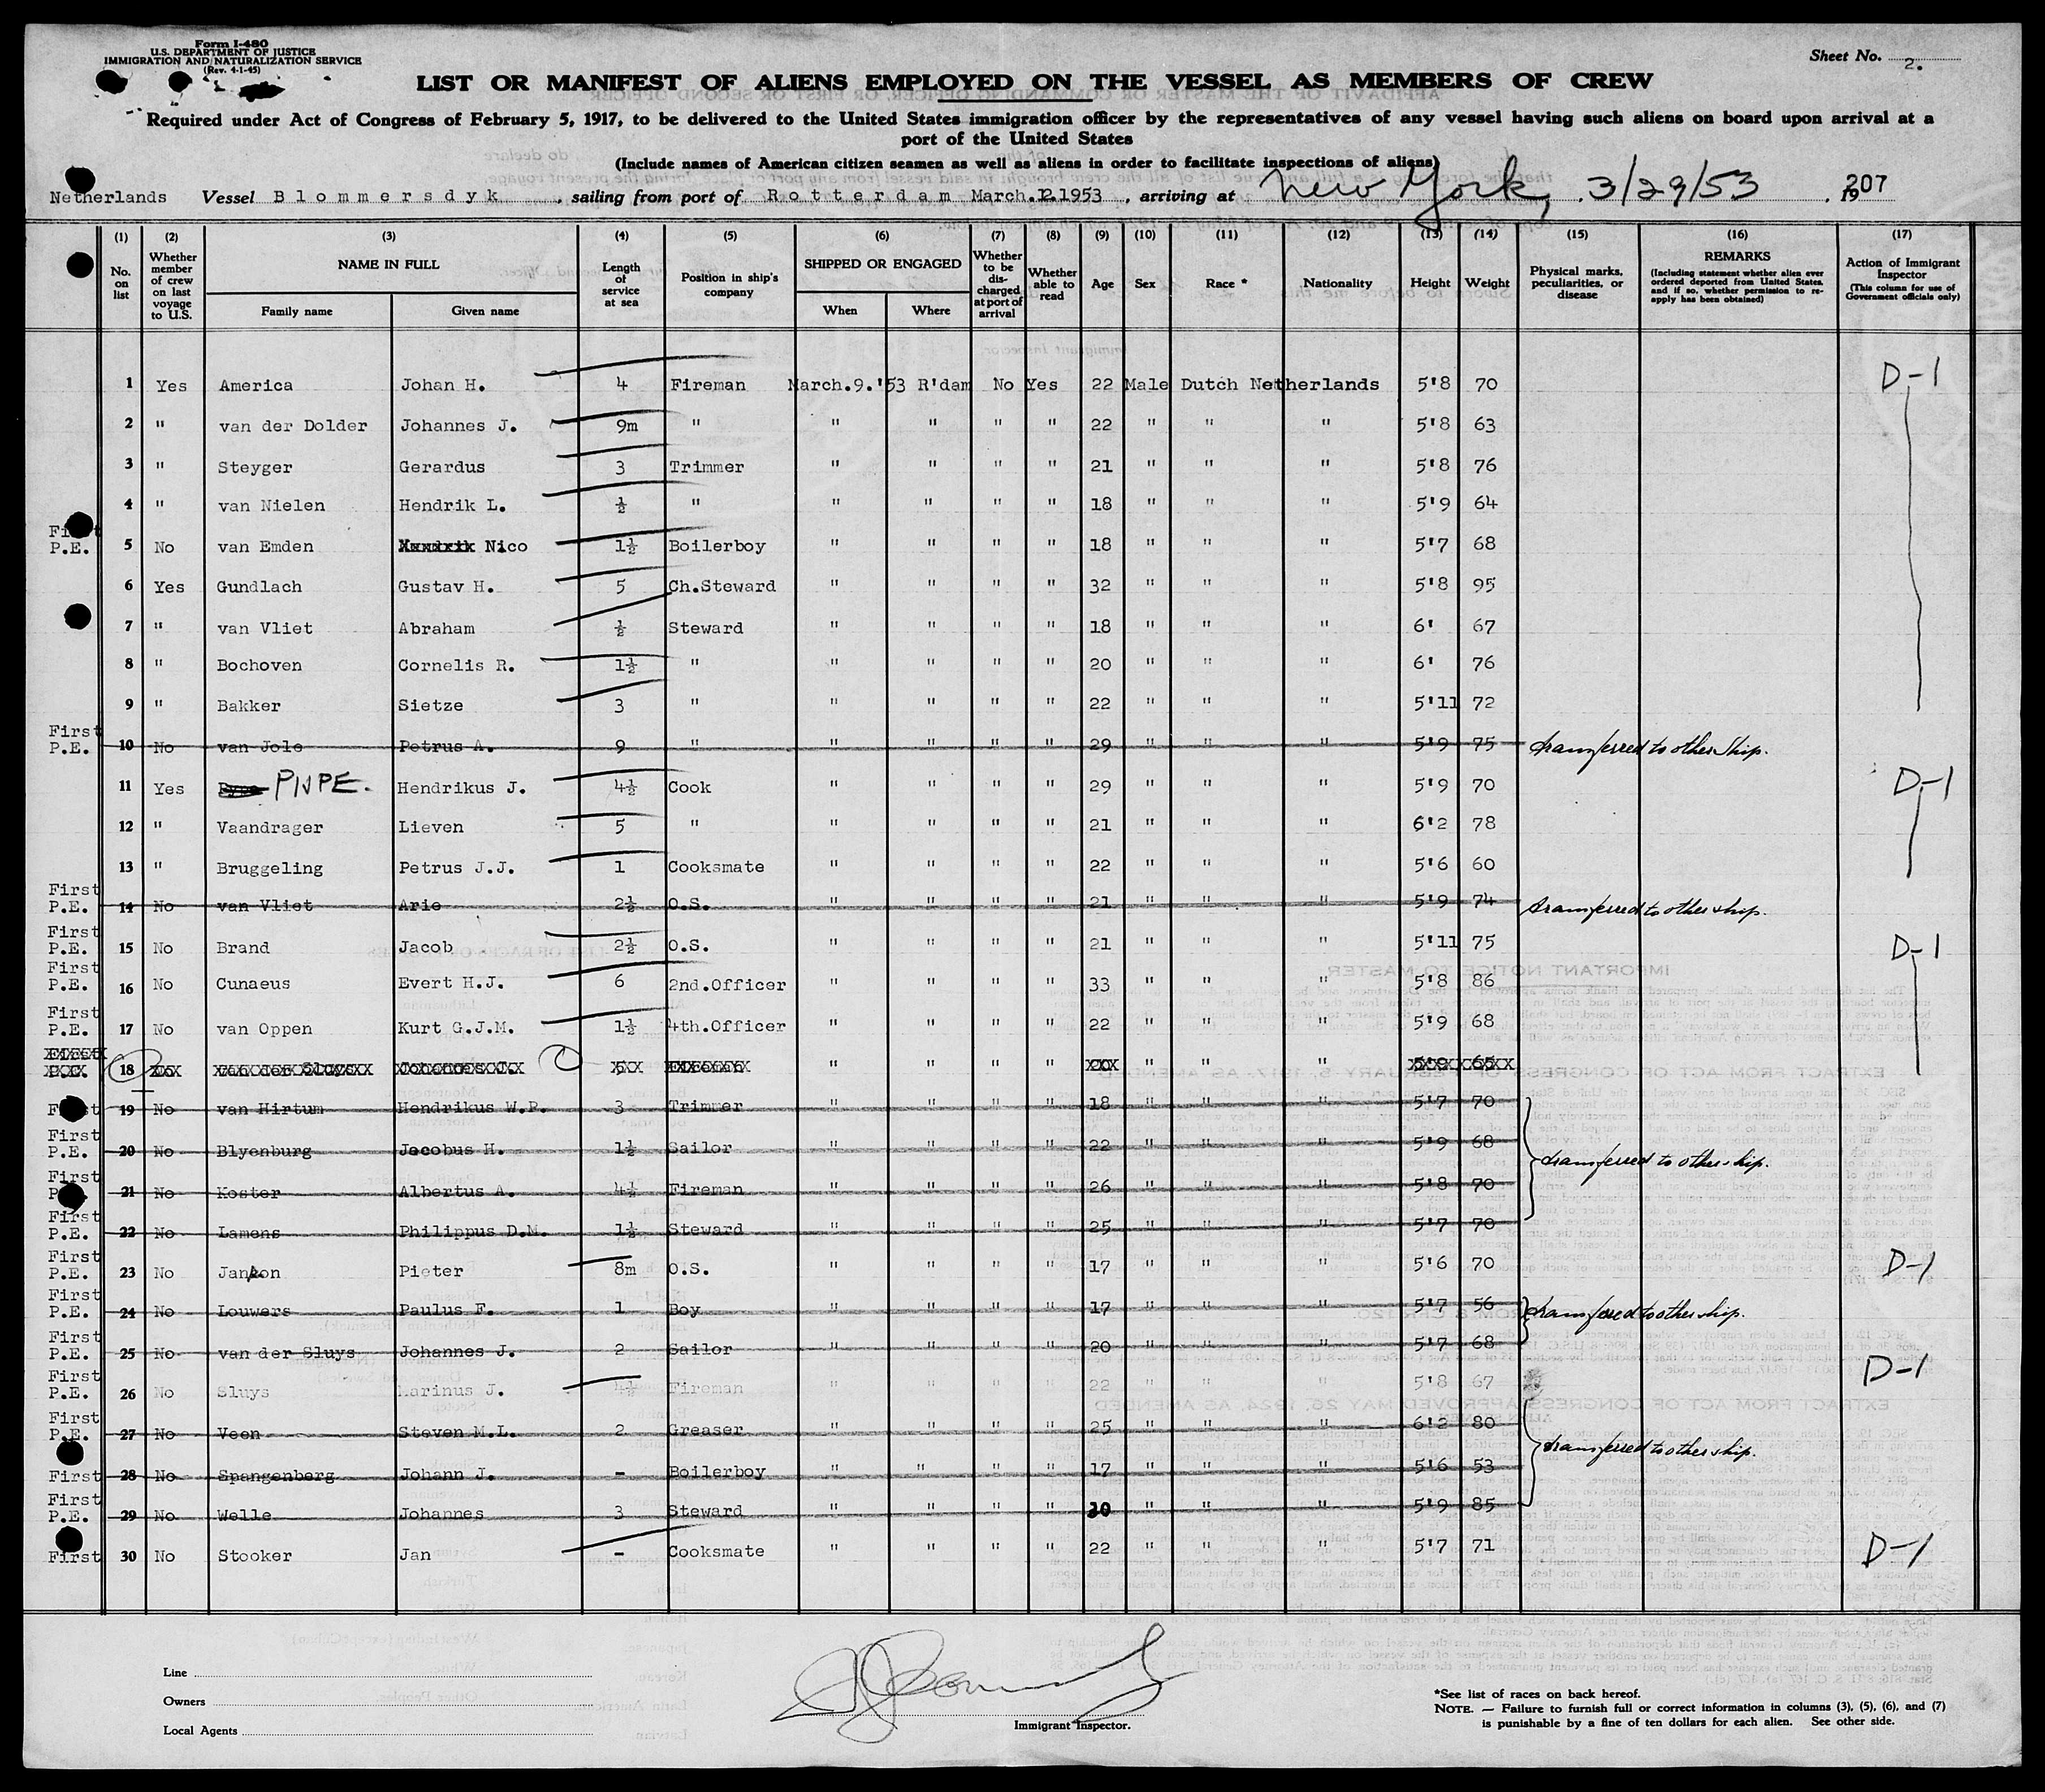 Form I-480
U.S. DEPARTMENT OF JUSTICE
IMMIGRATION AND NATURALIZATION SERVICE
(Rev. 4-1-45)
Sheet No. 2.
LIST OR MANIFEST OF ALIENS EMPLOYED ON THE VESSEL AS MEMBERS OF CREW
Required under Act of Congress of February 5, 1917, to be delivered to the United States immigration officer by the representatives of any vessel having such aliens on board upon arrival at a
port of the United States
(Include names of American citizen seamen as well as aliens in order to facilitate inspections of aliens)
Netherlands Vessel Blommersdyk, sailing from port of Rotterdam March.12.1953, arriving at New York, 3/29/53. 207
(1) (2) (3) (4) (5) (6) (7) (8) (9) (10) (11) (12) (13) (14) (15) (16) (17)
No. on list
Whether member of crew on last voyage to U.S.
NAME IN FULL
Family name
Given name
Length of service at sea
Position in ship's company
SHIPPED OR ENGAGED
When
Where
Whether to be discharged at port of arrival
Whether able to read
Age
Sex
Race *
Nationality
Height
Weight
Physical marks, peculiarities, or disease
REMARKS
(Including statement whether alien ever ordered deported from United States, and if so, whether permission to re-apply has been obtained)
Action of Immigrant Inspector
(This column for use of Government officials only)
1 Yes America Johan H. 4 Fireman March.9.'53 R'dam No Yes 22 Male Dutch Netherlands 5'8 70 D-1
2 " van der Dolder Johannes J. 9m " " " " " 22 " " " 5'8 63
3 " Steyger Gerardus 3 Trimmer " " " " 21 " " " 5'8 76
4 " van Nielen Hendrik L. ½ " " " " " 18 " " " 5'9 64
First P.E. 5 No van Emden Nico 1½ Boilerboy " " " " 18 " " " 5'7 68
6 Yes Gundlach Gustav H. 5 Ch.Steward " " " " 32 " " " 5'8 95
7 " van Vliet Abraham ½ Steward " " " " 18 " " " 6' 67
8 " Bochoven Cornelis R. 1½ " " " " " 20 " " " 6' 76
9 " Bakker Sietze 3 " " " " " 22 " " " 5'11 72
First P.E. 10 No van Jole Petrus A. 9 " " " " " 29 " " " 5'9 75 transferred to other ship.
11 Yes PIJPE. Hendrikus J. 4½ Cook " " " " 29 " " " 5'9 70 D-1
12 " Vaandrager Lieven 5 " " " " " 21 " " " 6'2 78
13 " Bruggeling Petrus J.J. 1 Cooksmate " " " " 22 " " " 5'6 60
First P.E. 14 No van Vliet Arie 2½ O.S. " " " " 21 " " " 5'9 74 transferred to other ship.
First P.E. 15 No Brand Jacob 2½ O.S. " " " " 21 " " " 5'11 75 D-1
First P.E. 16 No Cunaeus Evert H.J. 6 2nd.Officer " " " " 33 " " " 5'8 86
First P.E. 17 No van Oppen Kurt G.J.M. 1½ 4th.Officer " " " " 22 " " " 5'9 68
18 van der Sluys Johannes J. " " " " " " "
First 19 No van Hirtum Hendrikus W.P. 3 Trimmer " " " " 18 " " " 5'7 70
First P.E. 20 No Blyenburg Jacobus H. 1½ Sailor " " " " 22 " " " 5'9 68 transferred to other ship.
First P.E. 21 No Koster Albertus A. 4½ Fireman " " " " 26 " " " 5'8 70
First P.E. 22 No Lamens Philippus D.M. 1½ Steward " " " " 25 " " " 5'7 70
First P.E. 23 No Janson Pieter 8m O.S. " " " " 17 " " " 5'6 70 D-1
First P.E. 24 No Louwers Paulus F. 1 Boy " " " " 17 " " " 5'7 56 transferred to other ship.
First P.E. 25 No van der Sluys Johannes J. 2 Sailor " " " " 20 " " " 5'7 68
First P.E. 26 No Sluys Marinus J. 4½ Fireman " " " " 22 " " " 5'8 67 D-1
First P.E. 27 No Veen Steven M.L. 2 Greaser " " " " 25 " " " 6'2 80
First 28 No Spangenberg Johann J. - Boilerboy " " " " 17 " " " 5'6 53 transferred to other ship.
First P.E. 29 No Welle Johannes 3 Steward " " " " 30 " " " 5'9 85
First 30 No Stooker Jan - Cooksmate " " " " 22 " " " 5'7 71 D-1
Line
Owners
Local Agents
Immigrant Inspector.
*See list of races on back hereof.
NOTE. — Failure to furnish full or correct information in columns (3), (5), (6), and (7)
is punishable by a fine of ten dollars for each alien. See other side.